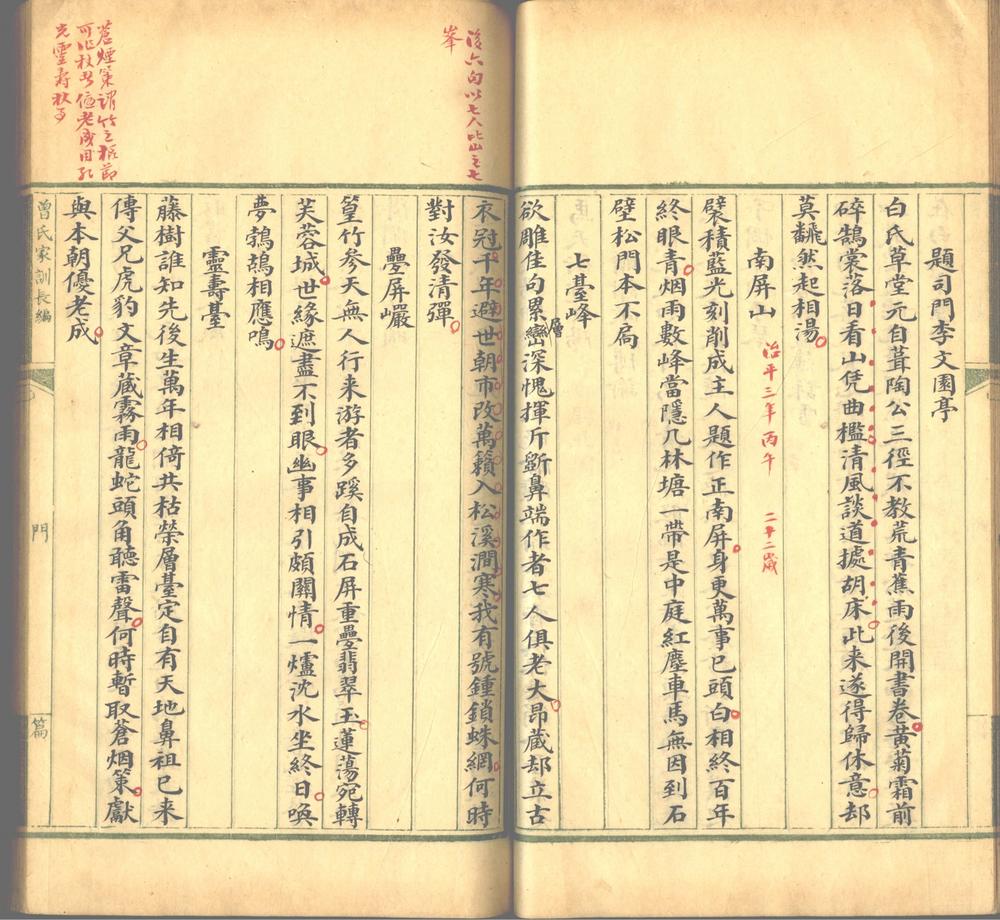 題司門李文園亭
白氏草堂元自葺陶公三徑不教荒青蕉雨後開書卷黃菊霜前
碎鵠裳落日看山凭曲檻清風談道據胡床此来遂得歸休意却
莫飜然起相湯
南屏山 治平三年丙午 二十二歲
襞積藍光刻削成主人題作正南屏身更萬事已頭白相終百年
終眼青烟雨數峰當隱几林塘一帶是中庭紅塵車馬無因到石
壁松門本不扃
七臺峰
欲雕佳句累層巒深愧揮斤斲鼻端作者七人俱老大昂藏却立古
衣冠千年避世朝市改萬籟入松溪澗寒我有號鍾鎖蛛網何時
對汝發清彈
後六句以七人比山之七
峯
疊屏巖
篁竹參天無人行来游者多蹊自成石屏重疊翡翠玉蓮蕩宛轉
芙蓉城世緣遮盡不到眼幽事相引頗關情一爐沈水坐終日喚
夢鵓鴣相應鳴
靈壽臺
藤樹誰知先後生萬年相倚共枯榮層臺定自有天地鼻祖已来
傳父兄虎豹文章藏霧雨龍蛇頭角聽雷聲何時暫取蒼烟策獻
與本朝優老成
蒼煙策謂竹之極節
可作杖者優老成用孔
光靈壽杖事
曾氏家訓長編
門
篇